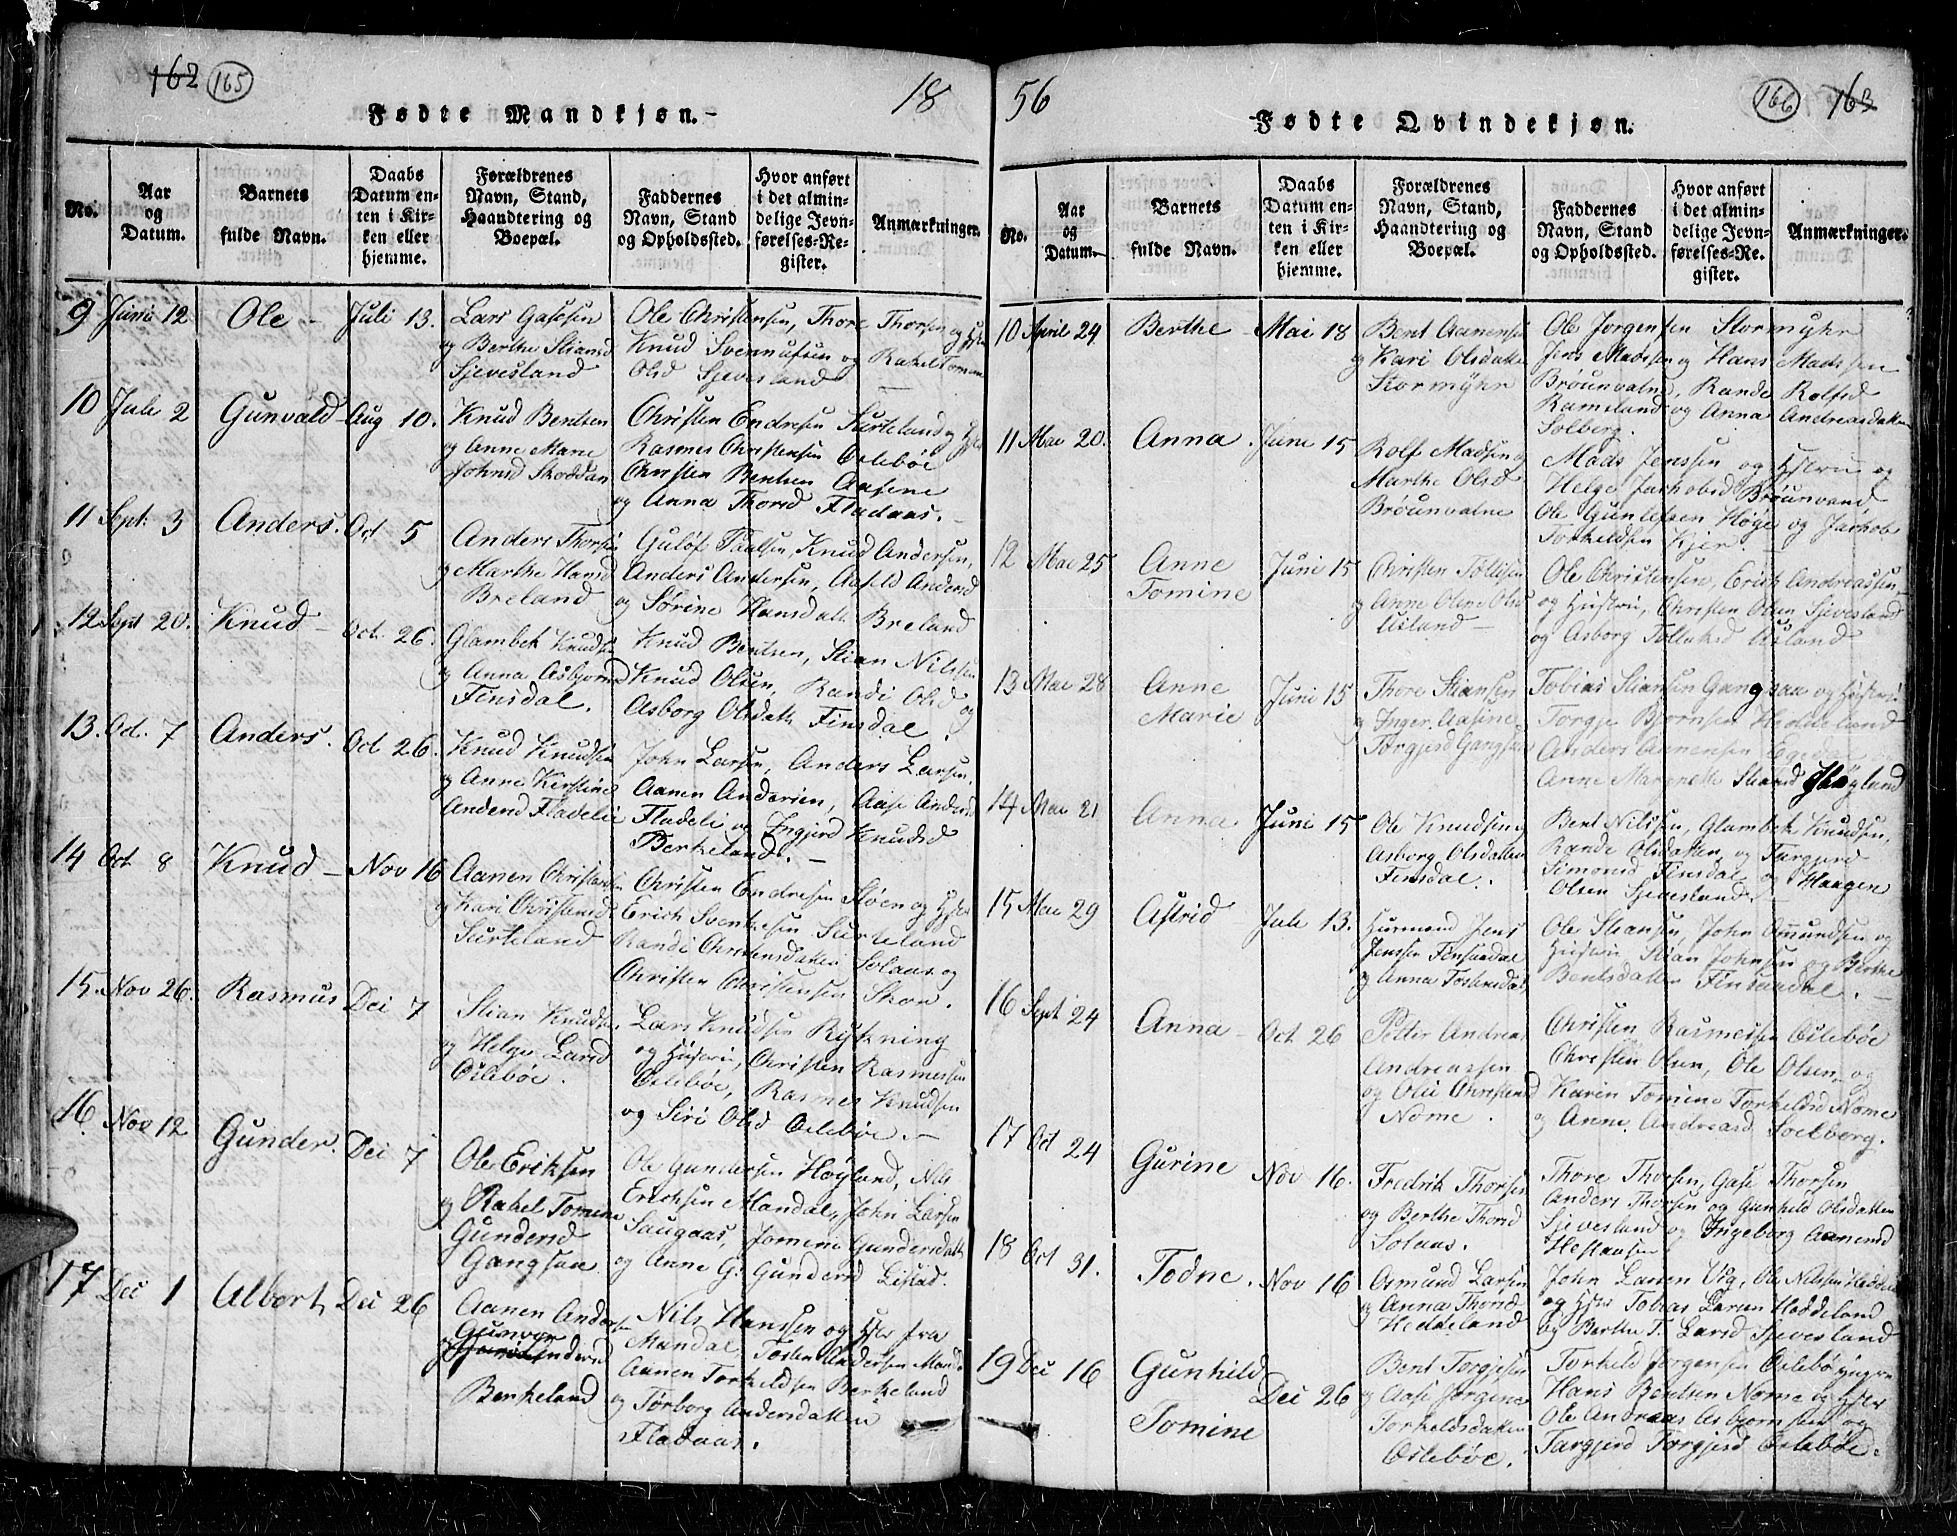 162 165
Fødte Mandkjøn.
18
No.
Aar
og
Datum.
Barnets
fulde Navn.
Daabs
Datum en-
ten i Kir-
ken eller
hjemme.
Forældrenes
Navn, Stand,
Haandtering og
Boepæl.
Faddernes
Navn, Stand
og Opholdssted.
Hvor anført
i det almin-
delige Jevn-
førelses-Re-
gister.
Anmærkninger.
9 Juni 12 Ole Juli 13.
Lars Gasesen
og Berthe Stiansd
Sjevesland
Ole Christensen, Thore Thorsen og
Knud Svennufsen og Rakel Tomine
Olsd Sjevesland
10 Juli 2 Gunvald Aug 10.
Knud Bentsen
og Anne Marie
Johnsd Skoddan
Christen Endresen Surteland og
Rasmus Christensen Oslebøe
Christen Bentsen Aasene
og Anna Thorsd Fladaas.
11 Sept: 3 Anders. Oct 5
Anders Thorsen
og Marthe Hansd
Breland
Guløf Paulsen, Knud Andersen,
Anders Andersen, Aaseld Andersd
og Sørine Hansdatt Breland
12 Sept 20. Knud Oct. 26.
Glambek Knudsen
og Anna Asbjornsd
Finsdal.
Knud Bentsen, Stian Nilssen
Knud Olsen, Randi Olsd og
Asborg Olsdatt Finsdal.
13. Oct. 7 Anders. Oct 26.
Knud Knudsen
og Anne Kirstine
Andersd Fladelie
John Larsen, Anders Larsen,
Aanen Andersen, Aase Andersd
Fladeli og Ingjerd Knudsd
Berkeland.
14 Oct 8 Knud Nov 16
Aanen Christensen
og Kari Christensd
Surteland
Christen Endresen Støen og
Erich Svenkesen Surteland
Randi Christensdatter Solaas og
Christen Christensen Skow.
15. Nov 26. Rasmus Dec 7
Stian Knudsen
og Helge Larsd
Oslebøe.
Lars Knudsen Rykning
og Hustrui, Christen Rasmussen
Oslebøe, Rasmus Knudsen
og Siri Olsd Oslebøe.
16 Nov 12 Gunder. Dec 7
Ole Eriksen
og Rakel Tomine
Gundersd
Gangsaa
Ole Gundersen Høyland, Nils
Eriksen Mandal, John Larsen
Saugaas, Jomine Gundersdatt
og Anne G. Gundersd Listad.
17 Dec 1 Albert, Dec 26
Aanen Andersen
Gunvor
Andersd
Berkeland
Nils Hanssen og fra
Mandal, Tosten Andersen Mandal
Aanen Torkildsen Berkeland
og Tørborg Andersdatter
Fladaas.
56
166 163
Fødte Qvindekjøn.
No.
Aar
og
Datum.
Barnets
fulde Navn.
Daabs
Datum en-
ten i Kir-
ken eller
hjemme.
Forældrenes
Navn, Stand,
Haandtering og
Boepæl.
Faddernes
Navn, Stand
og Opholdssted.
Hvor anført
i det almin-
delige Jevn-
førelses-Re-
gister.
Anmærkninger.
10 April 24 Berthe Mai 18
Bent Aanensen
og Kari Olsdatter
Stormyhr
Ole Jørgensen Stormyhr
Jens Madssen og Hans Madssen
Brøunvalne, Rande Rolfsd
Ramsland og Anna Andreasdatter
Solberg.
11 Mai 20. Anna. Juni 15
Rolf Madsen og
Marthe Olsd
Brøunvalne
Mads Jenssen og Hstrui og
Helge Jakobsd Brøunvand
Ole Gunlefsen Høge og Jakob
Torkeldsen Kjer.
12 Mai 25 Anne
Tomine
Juni 15
Christen Tollisen
og Anne Oline Olsd
Usland
Ole Christensen, Erich Andreassen,
og Hustrui, Christen Olsen Sjevesland
og Asborg Tolluksd Usland
13 Mai 28 Anne
Marie
Juni 15
Thore Stiansen
og Inger Aasine
Torgjersd Gangsaa
Tobias Stiansen Gangsaa og Hustrui
Torgje Bjørnsen Heddeland
Anders Aanensen
Anne Margrethe Høgland
14 Mai 21 Anna Juni 15
Ole Knudsen og
Asborg Olsdatter
Finsdal.
Bent Nilssen, Glambek Knudsen,
Rande Olsdatter og Targjerd
Simonsd Finsdal og Haagen
Olsen Sjevesland.
15 Mai 29 Astrid Juli 13.
Huusmand Jens
Jenssen Finsaadal
og Anna Tostensdatt
Ole Stiansen, John Omundsen og
Hustrui Stian Johnsen og Berthe
Bentsdatter Finsaadal.
16 Sept 24 Anna Oct 26
Petter Andreas
Andreassen
og Olie Christensd
Nome.
Christen Rasmussen Oslebøe
Christen Olsen, Ole Olsen og
Karen Tomine Torkeldsd Nome
og Anne Andreasd Soelberg.
17 Oct 24 Gurine Nov 16.
Fredrik Thorsen
og Berthe Thorsd
Solaas.
Thore Thorsen, Gase Thorsen
Anders Thorsen og Gunhild Olsdatter
Sjevesland og Ingeborg Aanensd
Hestaasen
18 Oct 31. Todne. Nov 16
Osmund Larsen
og Anna Thorsd
Heddeland
John Larsen Vig, Ole Nilssen Heddel
og Tobias Larsen Heddeland
og Berthe T. Larsd Sjevesland
19 Dec 16 Gunhild
Tomine
Dec 26
Bent Torgjesen
og Aase Jorgine
Torkeldsdatter
Oslebøe.
Torkeld Jørgensen Oslebø yngre
Hans Bentsen Nome og
Ole Andreas Asbjørnsen og
Targjerd Torgjesd Oslebøe.